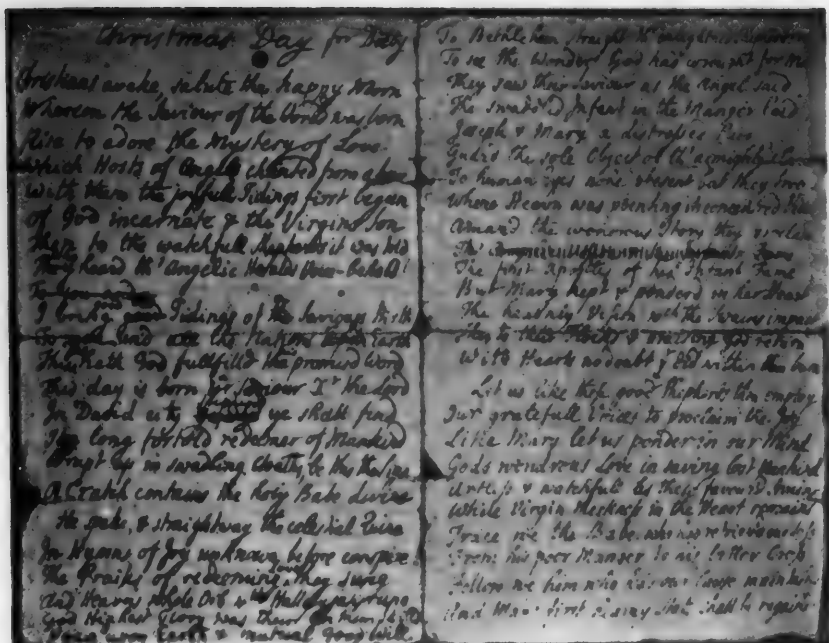 Christmas Day for Dolly
Christians awake, salute the happy Morn
Whereon the Saviour of the World was born
Rise to adore the Mystery of Love
Which Hosts of Angels chanted from above
With them the joyfull Tidings first begun
of God incarnate & the Virgins Son
Then to the watchfull Shepherds it was told
They heard th' Angelic Herald's Voice Behold!
I bring good Tidings of the Saviours Birth
To you and all the Nations upon Earth
This day hath God fullfilled the promised Word
This day is born Saviour the Lord
In David city ye shall find
The long foretold redeemer of Mankind
Wrapt up in swadling cloaths, be this the sign
A Cratch contains the holy Babe divine
He spake, & straightway the celestial Quire
In Hymns of Joy unknown before conspire
The Praises of redeeming Love they sung
And Heavns whole Orb with Hallelujas rung
God Highest Glory was their Anthem still
Peace upon Earth & mutual good Will
To Bethlehem straight th' enlightned Shepherds
To see the Wonder God had wrought for Man
They saw their Saviour as the Angel said
The swadled Infant in the Manger laid
Joseph & Mary a distressed Pair
Guard the sole Object of th' almighty's Care
To human Eyes none present but they two
Where Heavn was
Amaz'd the wondrous Story they proclaim
The first Apostles of his Infant Fame
But Mary kept & ponderd in her Heart
The heavnly Vision wch the Swains impart
They to their Flocks & praising God return
With Hearts no doubt yt did within them burn
Let us like these good Shepherds then employ
Our gratefull Voices to proclaim the Joy
Like Mary let us ponder in our Mind
Gods wondrous Love in saving lost Mankind
Artless & watchfull as these favourd Swains
While Virgin Meekness in the Heart remains
Trace we the Babe who has retrievd our loss
From his poor Manger to his bitter Cross
Follow we him who has our Cause maintaind
And Man's first State shall be regaind